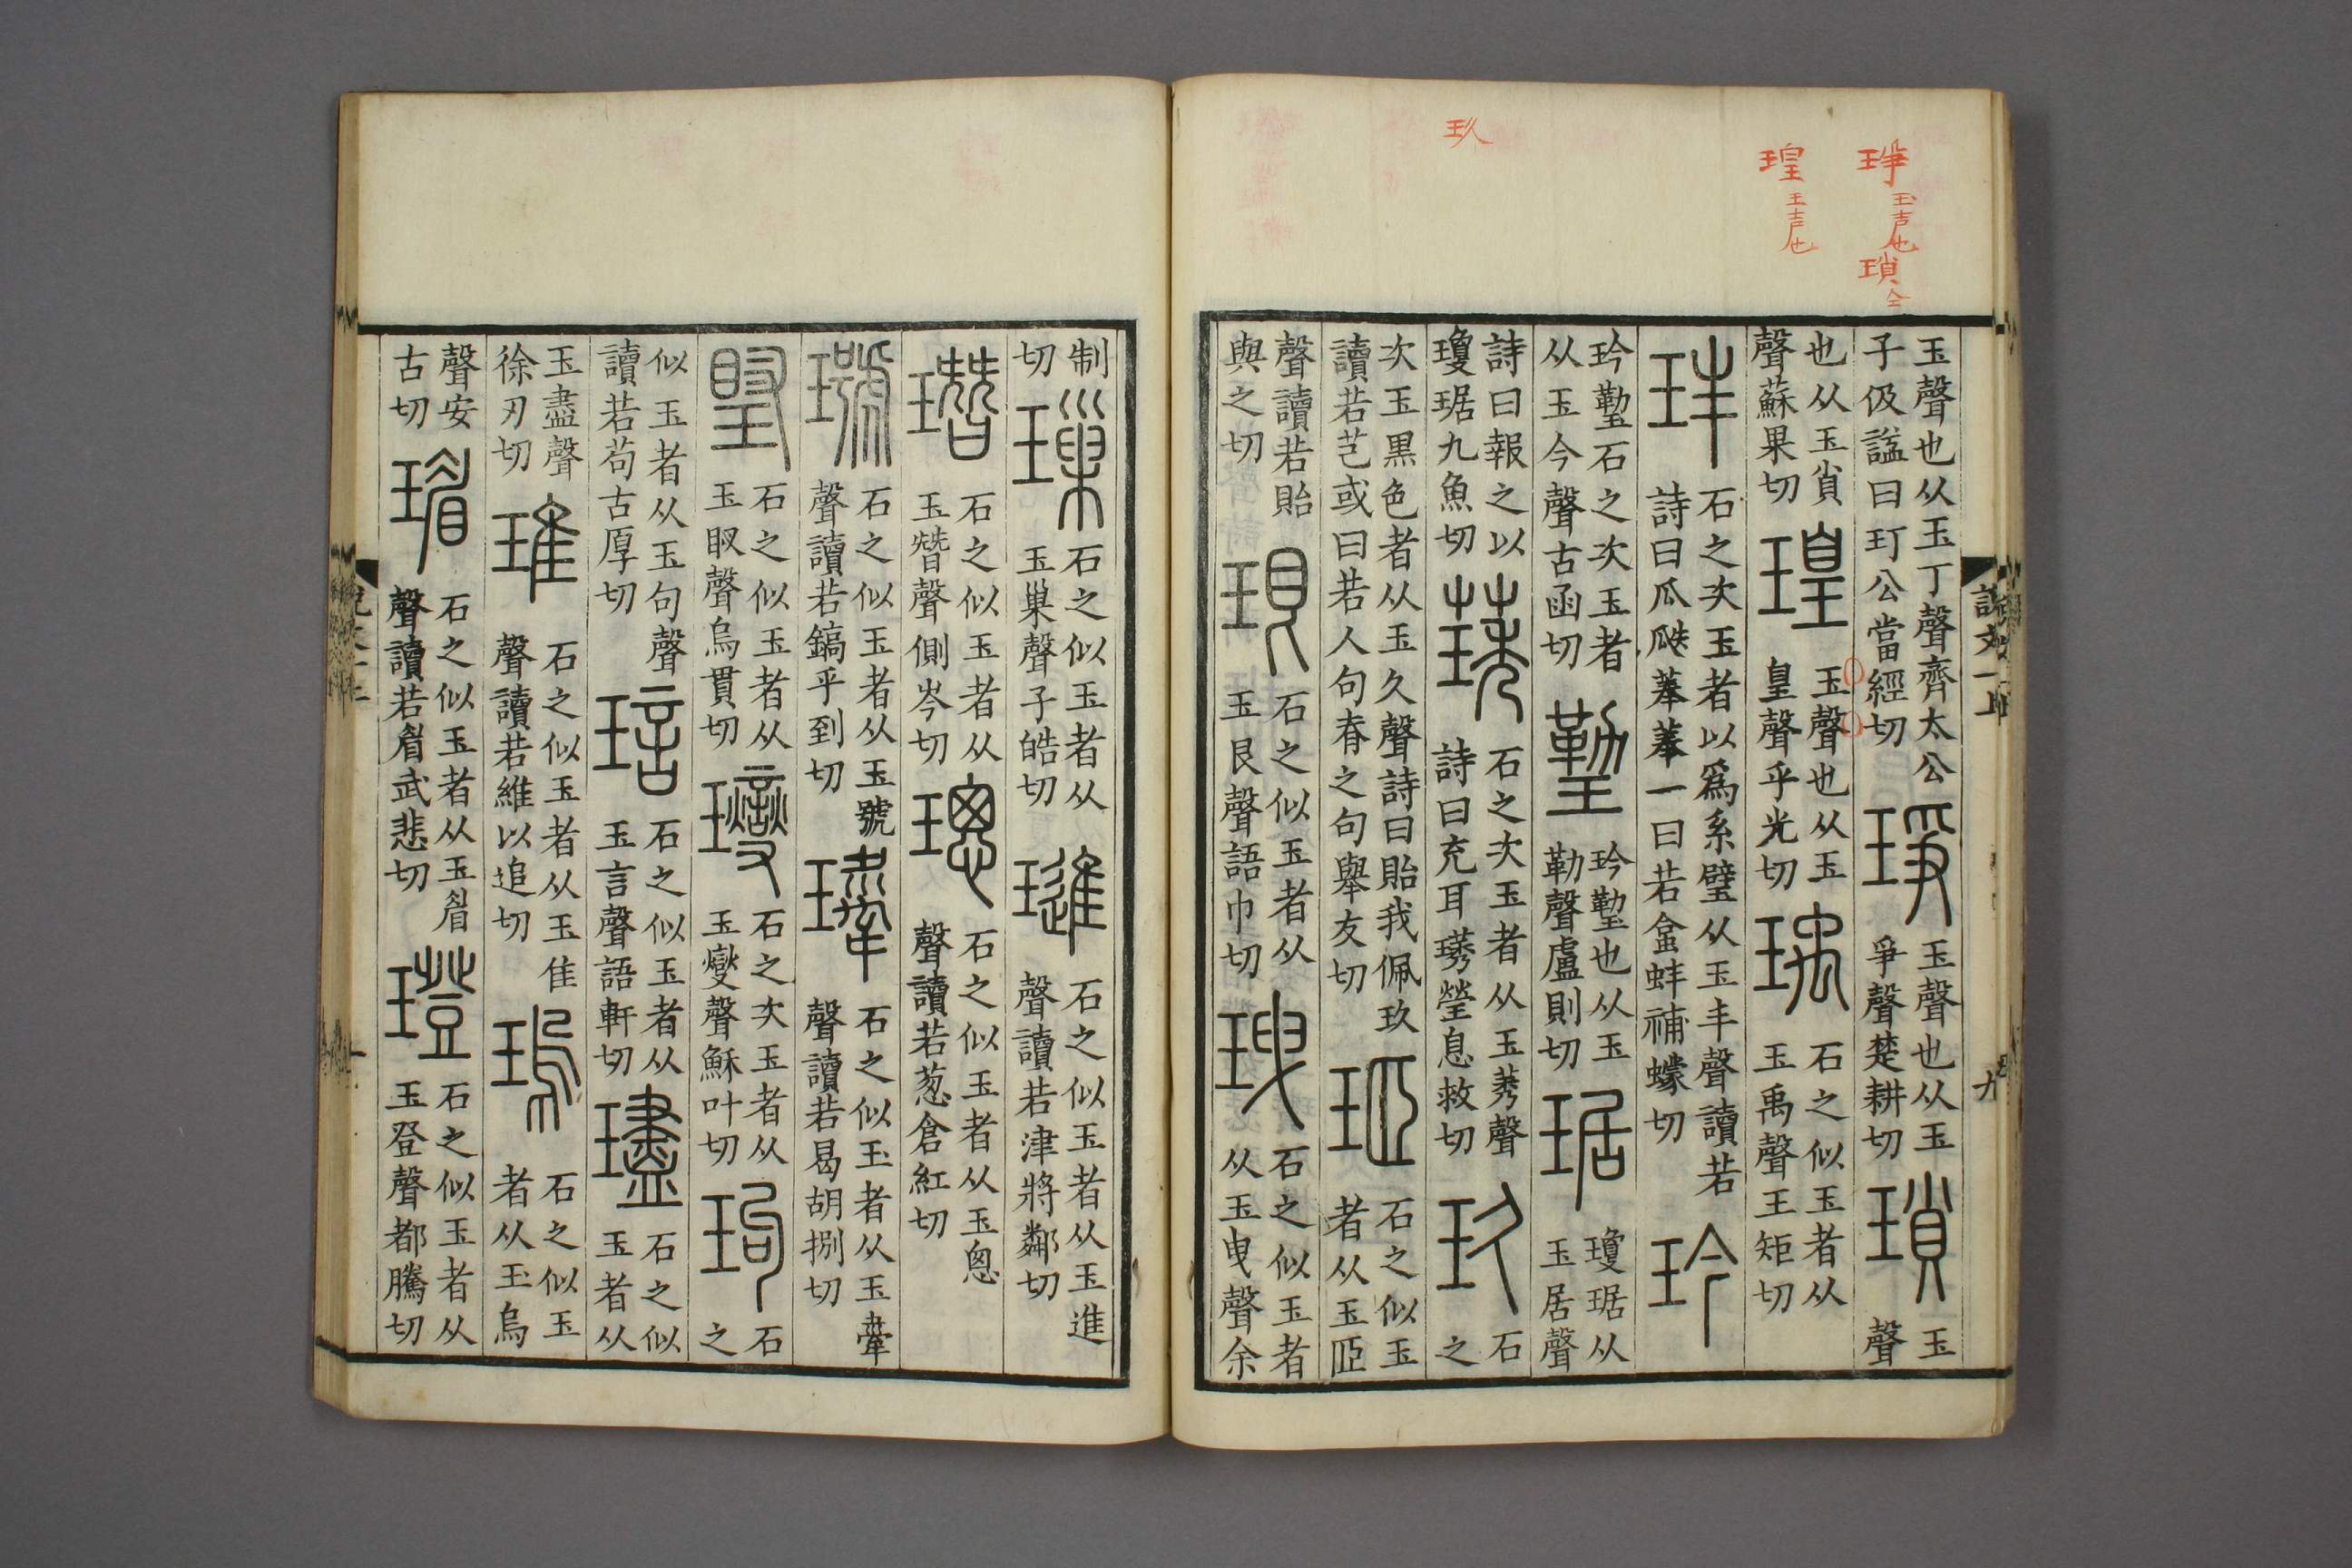 玉聲也从玉丁聲齊太公
子伋謚曰玎公當經切
琤
玉聲也从玉
爭聲楚耕切
瑣
玉
聲
也从玉𧴪
聲蘇果切
瑝
玉聲也从玉
皇聲乎光切
瑀
石之似玉者从
玉禹聲王矩切
玤
石之次玉者以爲系璧从玉丰聲讀若
詩曰瓜瓞菶菶一曰若盒蚌補蠓切
玪
玪石之次玉者
从玉今聲古函切
玪也从玉
勒聲盧則切
琚
瓊琚从
玉居聲
詩曰報之以
瓊琚九魚切
璓
石之次玉者从玉莠聲
詩曰充耳璓瑩息救切
玖
石
之
次玉黑色者从玉久聲詩曰貽我佩玖
讀若芑或曰若人句脊之句舉友切
㺿
石之似玉
者从玉𦣞
聲讀若貽
與之切
珢
石之似玉者从
玉艮聲語巾切
玴
石之似玉者
从玉曳聲余
制
切
璅
石之似玉者从
玉巢聲子皓切
璡
石之似玉者从玉進
聲讀若津將鄰切
石之似玉者从
玉朁聲側岑切
璁
石之似玉者从玉悤
聲讀若葱倉紅切
石之似玉者从玉號
聲讀若鎬乎到切
石之似玉者从玉舝
聲讀若曷胡捌切
石之似玉者从
玉䀏聲烏貫切
石之次玉者从
玉燮聲穌叶切
玽
石
之
似玉者从玉句聲
讀若苟古厚切
琂
石之似玉者从
玉言聲語軒切
璶
石之似
玉者从
玉盡聲
徐刃切
琟
石之似玉者从玉隹
聲讀若維以追切
瑦
石之似玉
者从玉烏
聲安
古切
瑂
石之似玉者从玉眉
聲讀若眉武悲切
璒
石之似玉者从
玉登聲都騰切
說文一上
九
琤
玉声也
瑣
仝
瑝
玉声也
玖